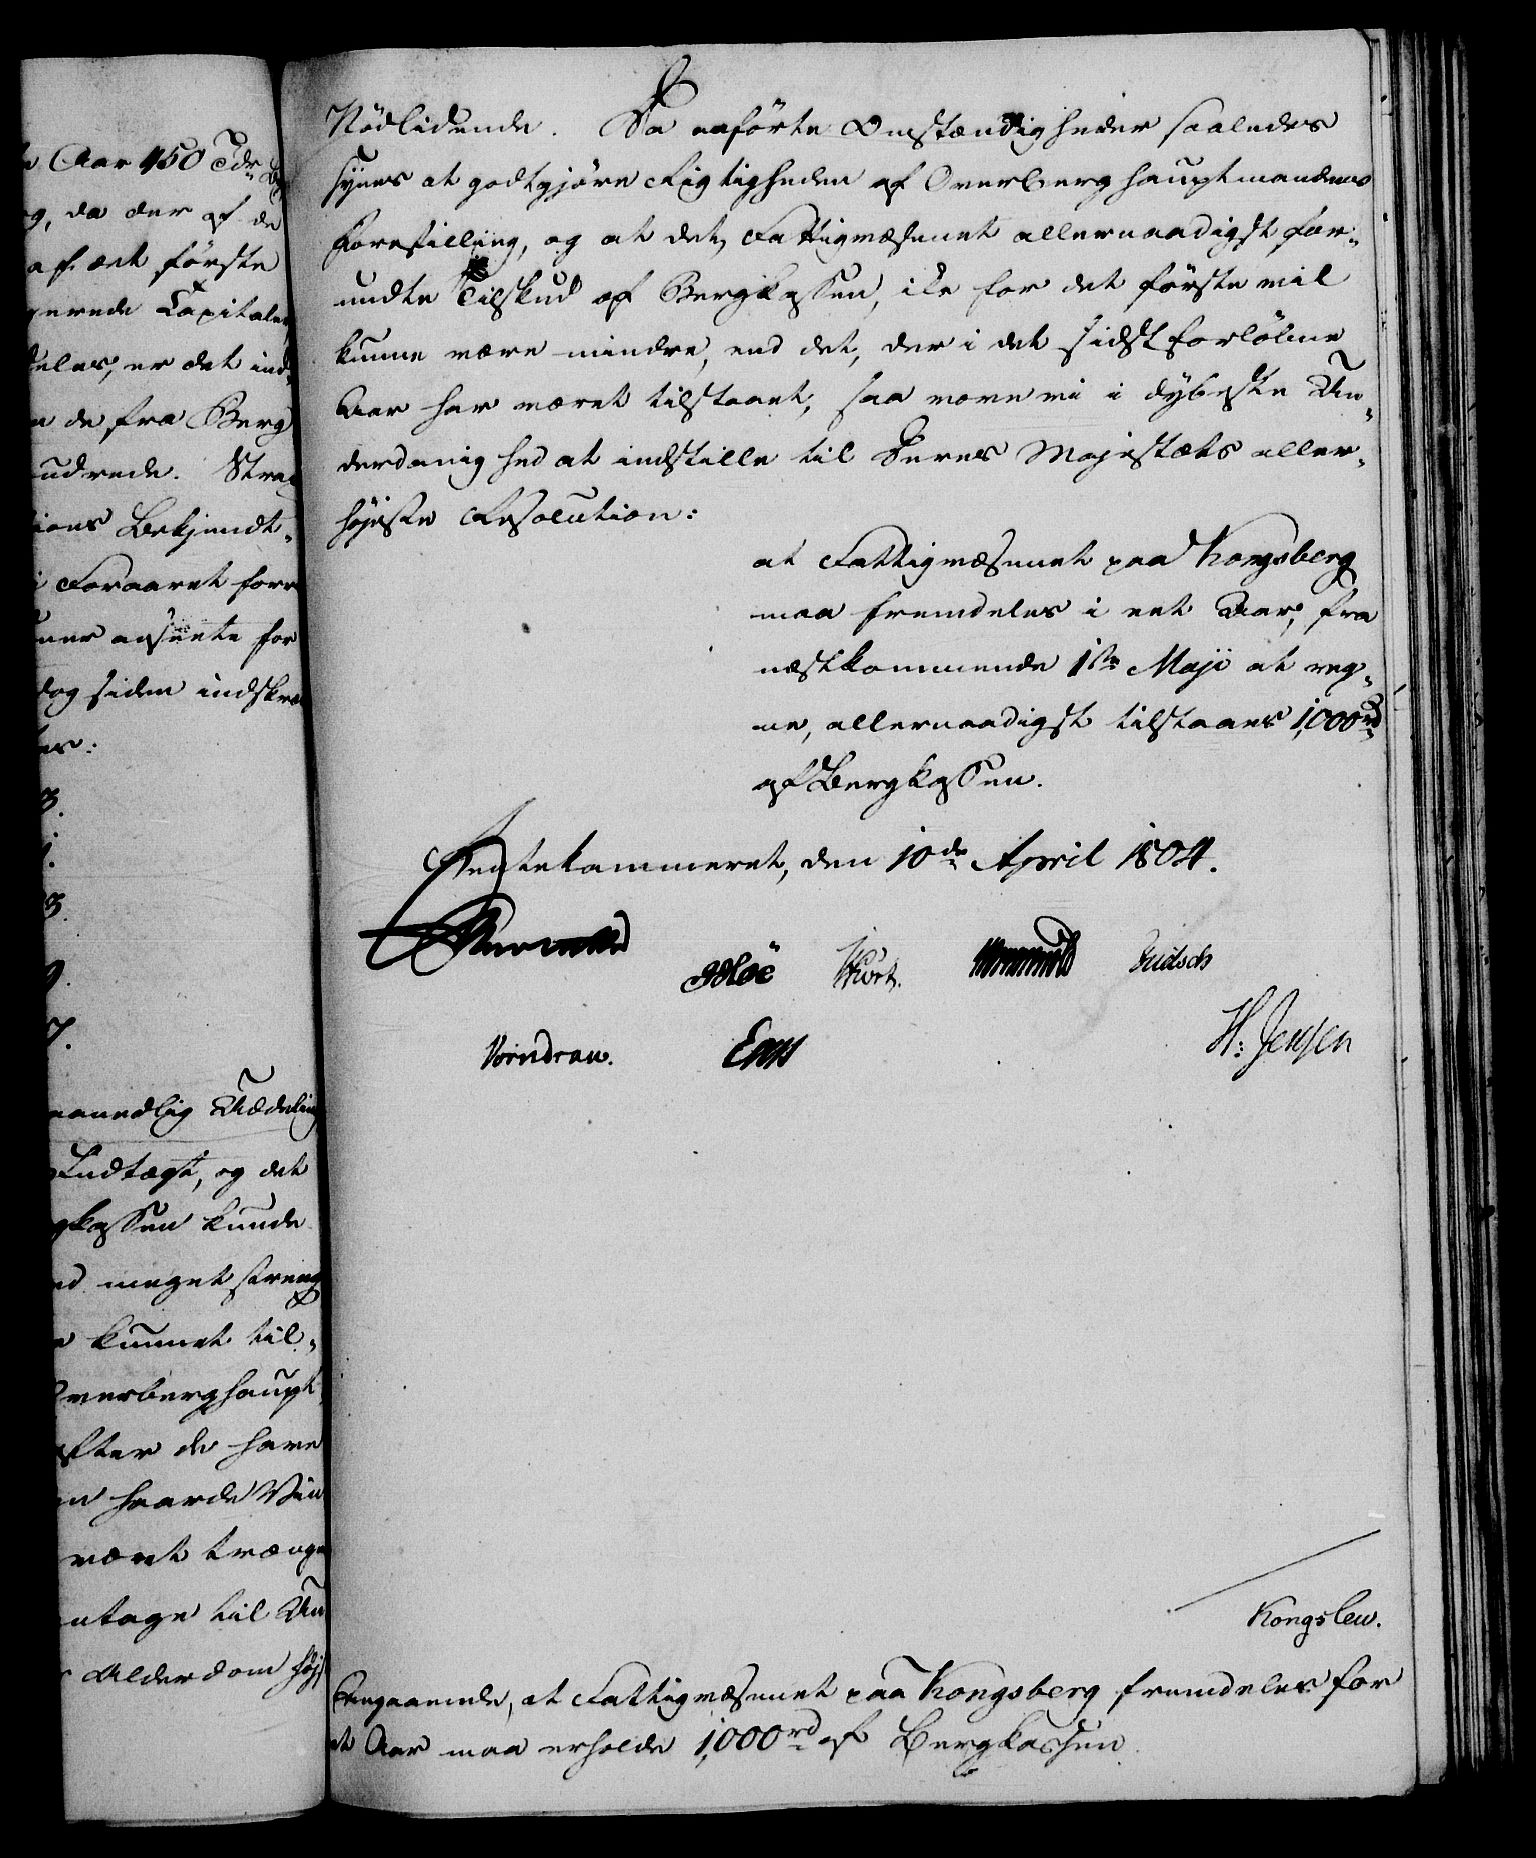 e Aar 450 Tdr
g, da der af de
af det første
gerede Capitaler
deles, er det ind-
n de fra Berg
udrede. Strax
tions Bekjendt-
i Foraaret forr
anseete for
dog siden indskræ
es:
3.
3.
9.
7.
aanedlig Uddeling
Indtægt, og det
gkassen kunde
ed meget streng
e kunnet til-
Overberghaupt
efter de have
n haarde Vin
været trænge
ntage til Un
Alderdom høj
Nödlidende. Da anførte Omstændigheder saaledes
synes at godtgjöre Rigtigheden af Overberghauptmandens
Forestilling, og at det, Fattigvæsenet allernaadigst for-
undte Tilskud af Bergkassen, ikke for det förste vil
kunne være mindre, end det, der i det sidst forløbne
Aar har været tilstaaet; saa vove vi i dybeste Un-
derdanighed at indstille til Deres Majestæts aller-
höjeste Resolution:
at Fattigvæsenet paa Kongsberg
maa fremdeles i eet Aar, fra
næstkommende 1ste Maji at reg-
ne, allernaadigst tilstaaes 1,000 rd
af Bergkassen.
Rentekammeret, den 10de April 1804.
Vorndran.
H: Jensen
Kongslew.
Angaaende, at Fattigvæsenet paa Kongsberg fremdeles for
et Aar maa erholde 1,000 rd af Bergkassen